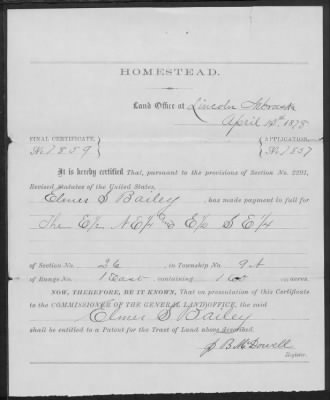 HOMESTEAD.
Land Office at Lincoln Nebraska
April 18th 1878
FINAL CERTIFICATE, APPLICATION,
No 1859 No 1857
It is hereby certified That, pursuant to the provisions of Section No. 2291,
Revised Statutes of the United States,
Elmer S Bailey has made payment in full for
The E/2 N E/4 and E/2 S E/4
of Section No. 26 in Township No. 9 N
of Range No. 1 East containing 160 acres.
NOW, THEREFORE, BE IT KNOWN, That on presentation of this Certificate
to the COMMISSIONER OF THE GENERAL LAND OFFICE, the said
Elmer S Bailey
shall be entitled to a Patent for the Tract of Land above described.
J B McDowell
Register.